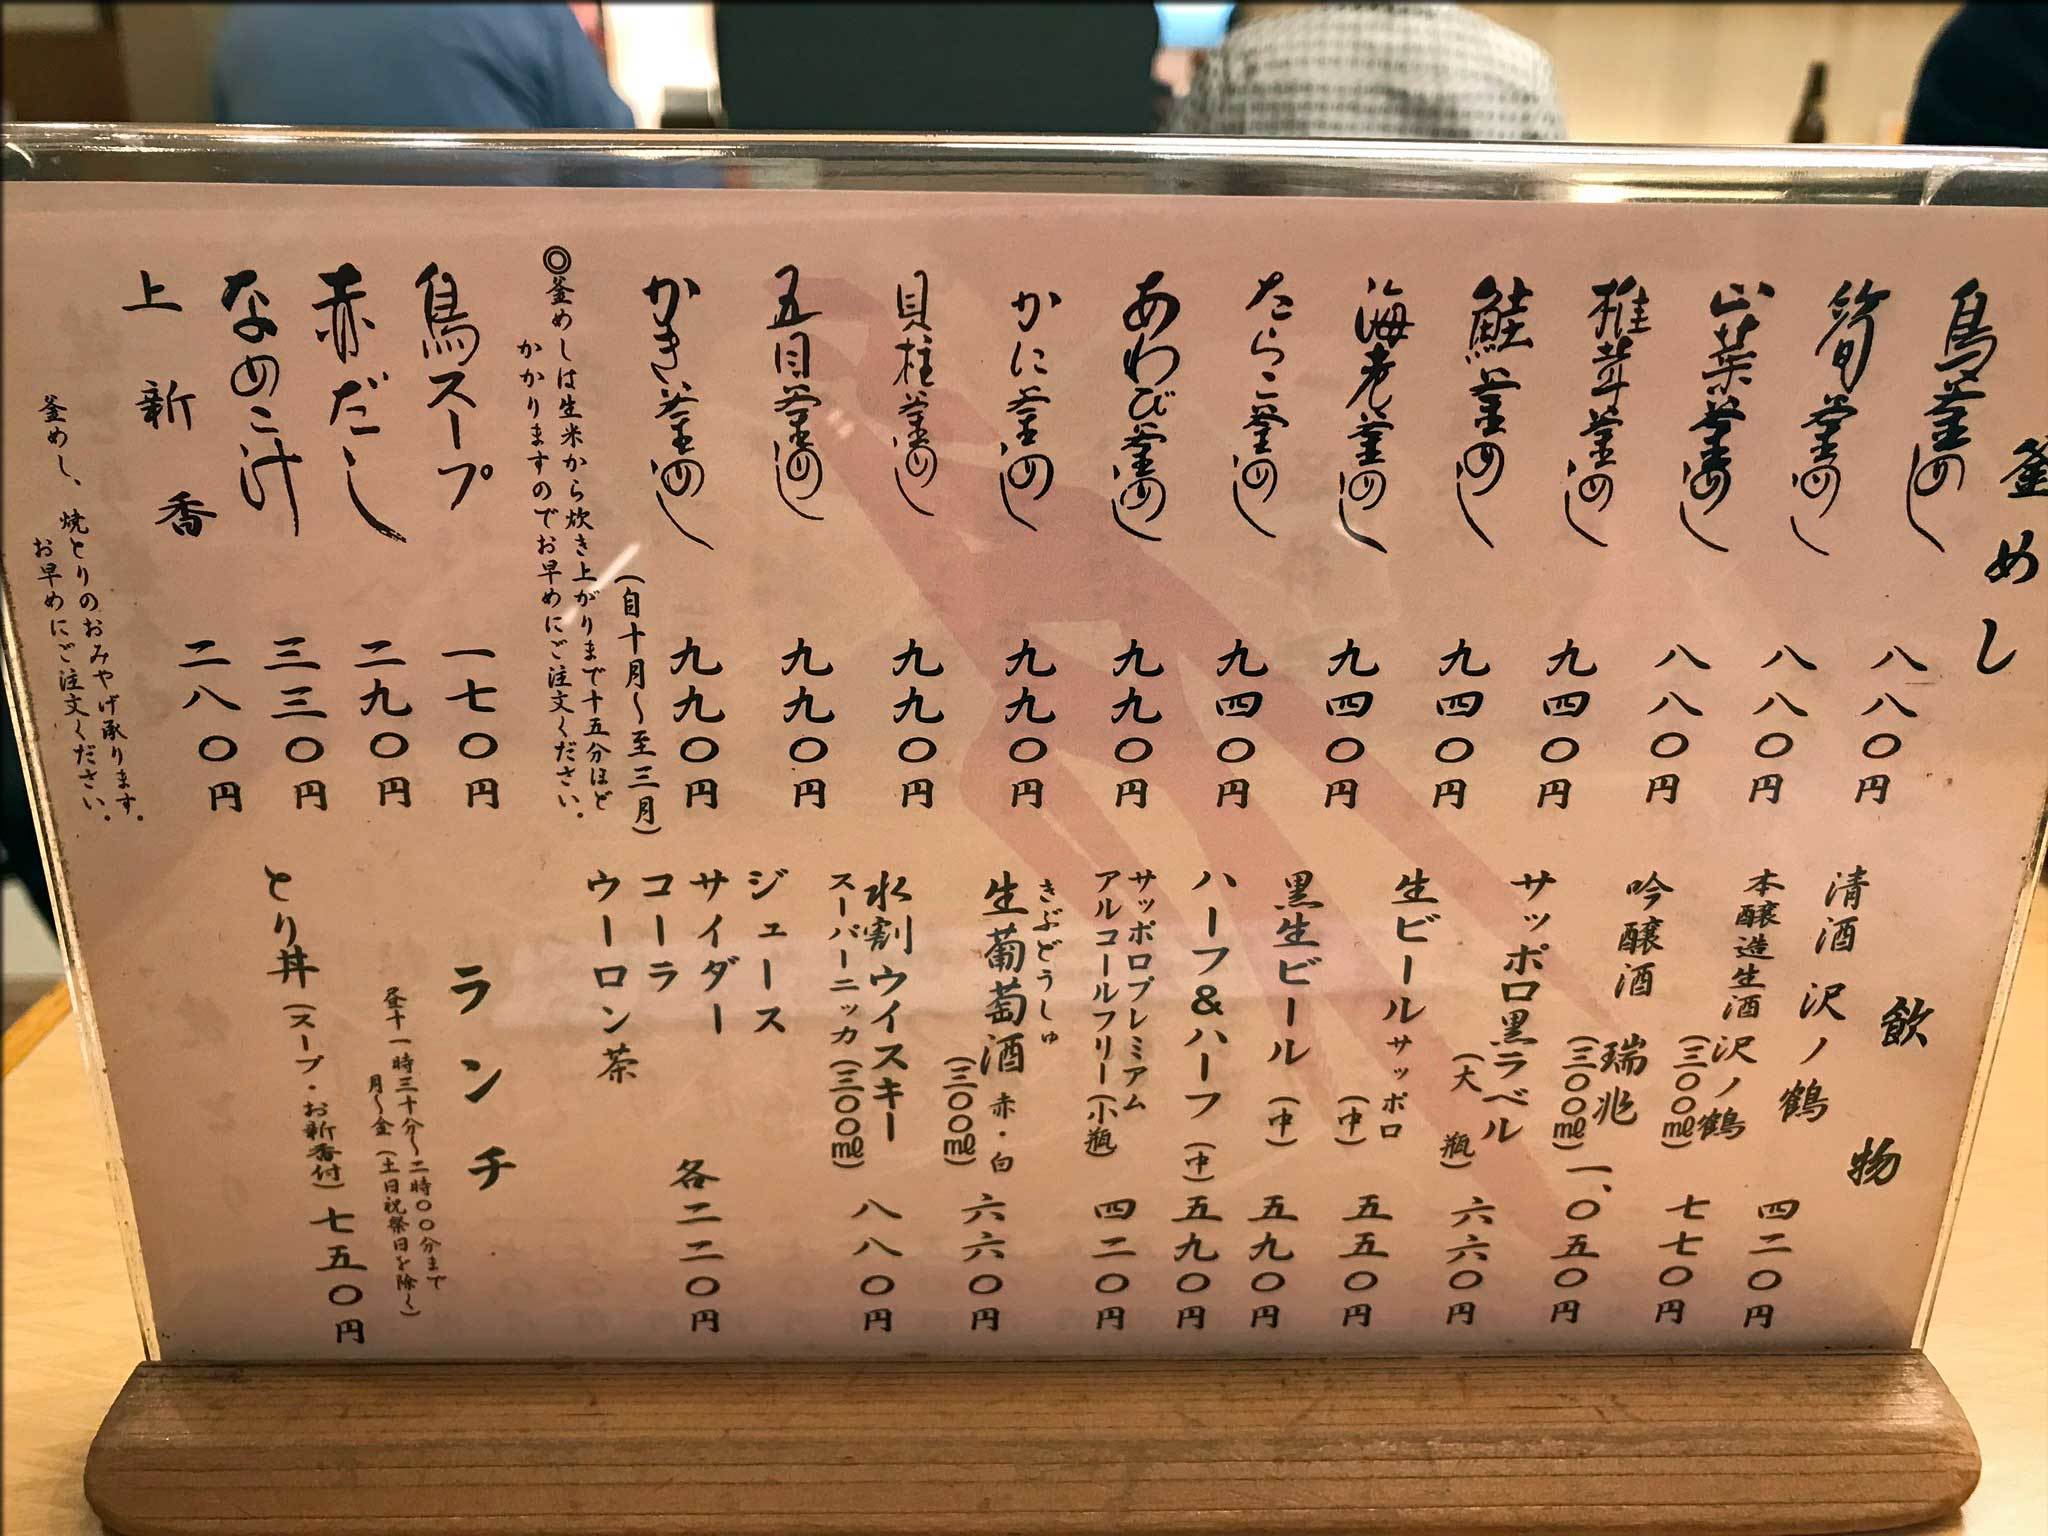 釜めし
鳥釜めし 八八〇円
筍釜めし 八八〇円
山菜釜めし 八八〇円
椎茸釜めし 九四〇円
鮭釜めし 九四〇円
海老釜めし 九四〇円
たらこ釜めし 九四〇円
あわび釜めし 九九〇円
かに釜めし 九九〇円
貝柱釜めし 九九〇円
五目釜めし 九九〇円
かき釜めし 九九〇円
(自十月〜至三月)
◎釜めしは生米から炊き上がりまで十五分ほど
かかりますのでお早めにご注文ください。
鳥スープ 一七〇円
赤だし 二九〇円
なめこ汁 三三〇円
上新香 二八〇円
釜めし、焼とりのおみやげ承ります。
お早めにご注文ください。
飲物
清酒 沢ノ鶴 四二〇円
本醸造生酒 沢ノ鶴 (三〇〇㎖) 七七〇円
吟醸酒 瑞兆 (三〇〇㎖) 一、〇五〇円
サッポロ黒ラベル (大瓶) 六六〇円
生ビール サッポロ (中) 五五〇円
黒生ビール (中) 五九〇円
ハーフ&ハーフ (中) 五九〇円
サッポロプレミアム
アルコールフリー (小瓶) 四二〇円
きぶどうしゅ
生葡萄酒 赤・白 (三〇〇㎖) 六六〇円
水割ウイスキー
スーパーニッカ (三〇〇㎖) 八八〇円
ジュース
サイダー
コーラ
ウーロン茶
各二二〇円
ランチ
昼十一時三十分〜二時〇〇分まで
月〜金 (土日祝祭日を除く)
とり丼 (スープ・お新香付) 七五〇円